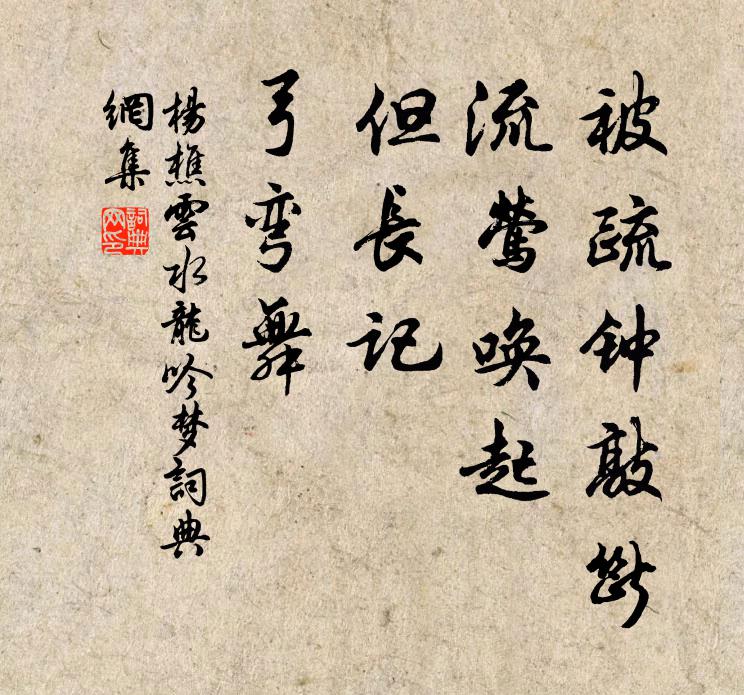 被疏钟敲断
流莺唤起
但長记
弓弯舞
楊樵雲水龍吟梦詞典
網集
詞典
网印